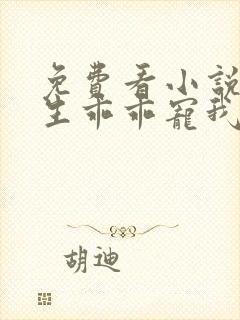 免費看小說
生乖乖寵我
胡迪